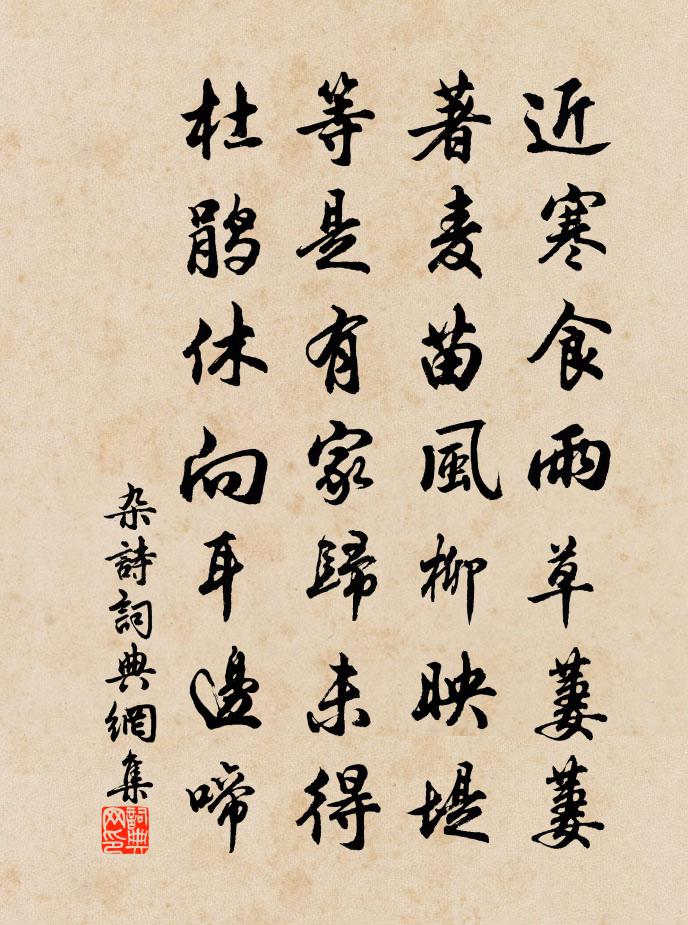 近寒食雨草萋萋
著麦苗風柳映堤
等是有家歸未得
杜鹃休向耳邊啼
杂詩詞典網集
詞典
网印